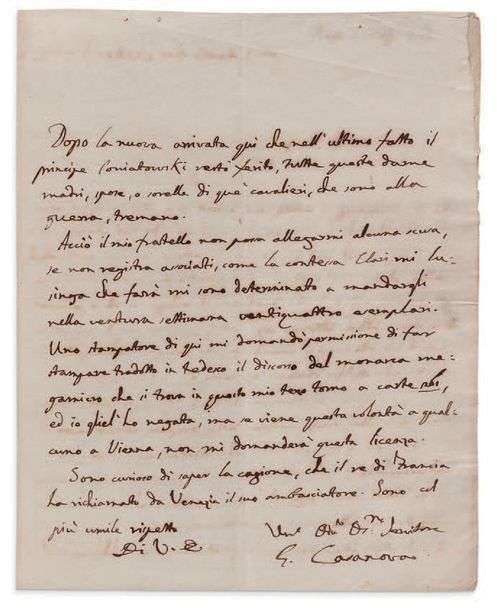 Dopo la nuova arrivata qui che nell'ultimo fatto il
principe Poniatowski restò ferito, tutte queste dame
madri, spose, o sorelle di que' cavalieri, che sono alla
guerra, tremano.
Acciò il mio fratello non possa allegarmi alcuna scusa,
se non registra associati, come la contessa Clari mi lu-
singa che farà mi sono determinato a mandargli
nella ventura settimana ventiquattro esemplari.
Uno stampatore di qui mi domandò permissione di far
stampare tradotto in tedesco il discorso del monarca me-
gamicro che si trova in questo mio terzo tomo a carte 261,
ed io gliel'ho negata, ma se viene questa volontà a qual-
cuno a Vienna, non mi domanderà questa licenza.
Sono curioso di saper la cagione, che il re di Francia
ha richiamato da Venezia il suo ambasciatore. Sono col
più umile rispetto
Di V. E.
Servitore
G. Casanova